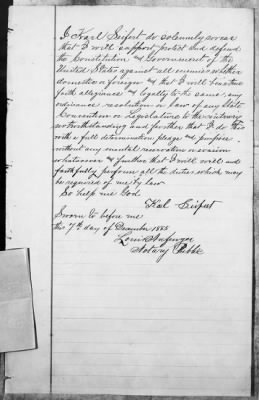 I Karl Seifert do solemnly swear
that I will support protect and defend
the Constitution & Government of the
United States against all enemies whether
domestic or foreign & that I will bear true
faith allegiance & loyalty to the same any
ordinance resolution or law of any State
Convention or Legislature to the contrary
notwithstanding and further that I do this
with a full determination pledge & purpose
without any mental reservation or evasion
whatsoever & further that I will well and
faithfully perform all the duties which may
be required of me by law
So help me God
Karl Seifert
Sworn to before me
this 7th day of December 1885
Louis
Notary Public